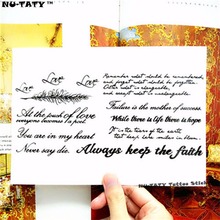 NU-TATY™
NU-TATY™
Love
Love
Love
Remember what should be remembered,
and forget what should be forgotten.
Alter what is changeable,
and accept what is unchangeable.
At the push of love
everyone becomes a poet
You are in my heart
Never say die.
Failure is the mother of success.
While there is life there is hope
It is the tears of the earth
that keep her smiles in bloom.
Always keep the faith
NU-TATY Tattoo Sticker